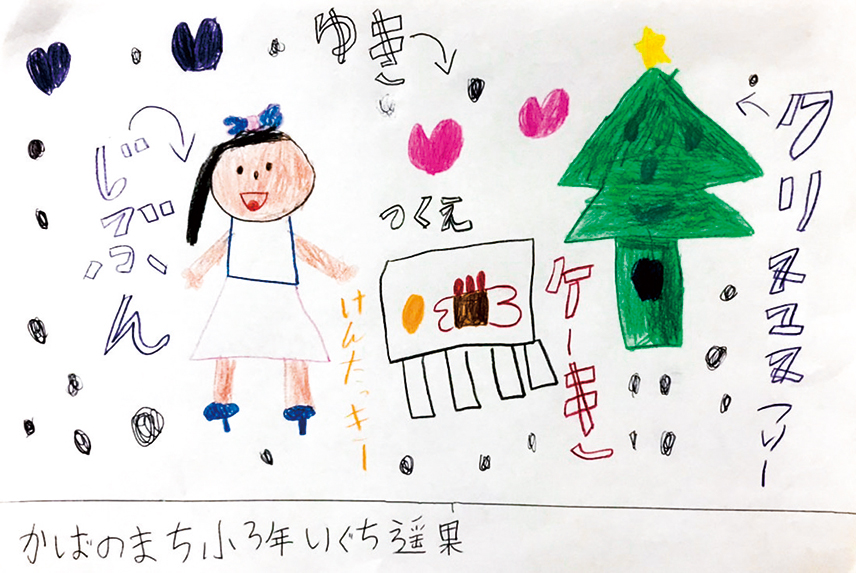 ゆき
じぶん
つくえ
けんたっきー
ケーキ
クリスマスツリー
かばのまち小3年いぐち遥果